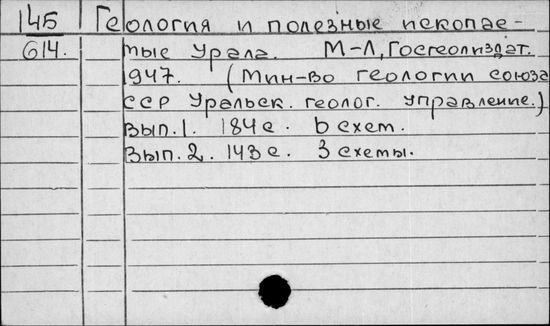 145 Геология и полезные ископае-
614. мые Урала. М-Л, Госгеолиздат.
1947. (Мин-во геологии союза
ССР Уральск. геолог. управление.)
Вып. 1. 184 с. 6 схем.
Вып. 2. 143 с. 3 схемы.